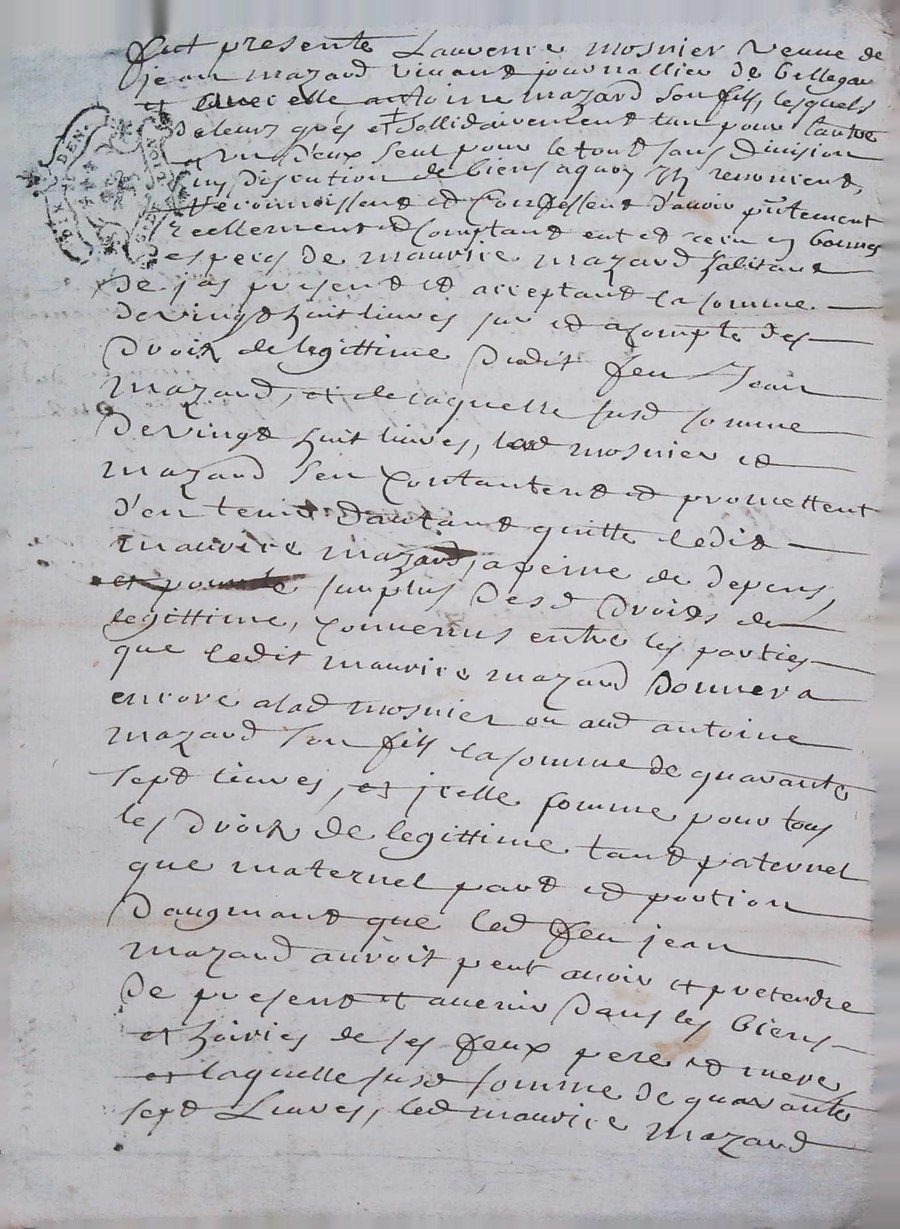 fut presente Laurence mosnier veuve de
jean mazard vivant journallier de
et avec elle antoine mazard son fils, lesquels
de leurs grés et sollidairement lun pour lautre
un d'eux seul pour le tout sans division
ny discution de biens aquoy ils renoncent,
reconnoissent et confessent d'avoir pntement
reellement et comptant eut et receu en bonnes
especes de maurice mazard habitant
de jas present et acceptant la somme
de vingt huit livres sur et acompte des
droix de legittime dudit feu Jean
mazard, et de laquelle susd somme
de vingt huit livres, lad mosnier et
mazard sen contantent et promettent
d'en tenir d'autant quitte ledit
maurice mazard, a peine de depens,
et pour le surplus desd droits de
legittime, convenus entre les parties
que ledit maurice mazard donnera
encore a lad mosnier ou aud antoine
mazard son fils la somme de quarante
sept livres, et jcelle somme pour tous
les droix de legittime tant paternel
que maternel part et portion
d'augmant que led feu jean
mazard auroit peut avoir et pretendre
de present et avenir dans les biens
et hoiries de ses feux pere et mere
et laquelle susd somme de quarante
sept Livres, led maurice mazard